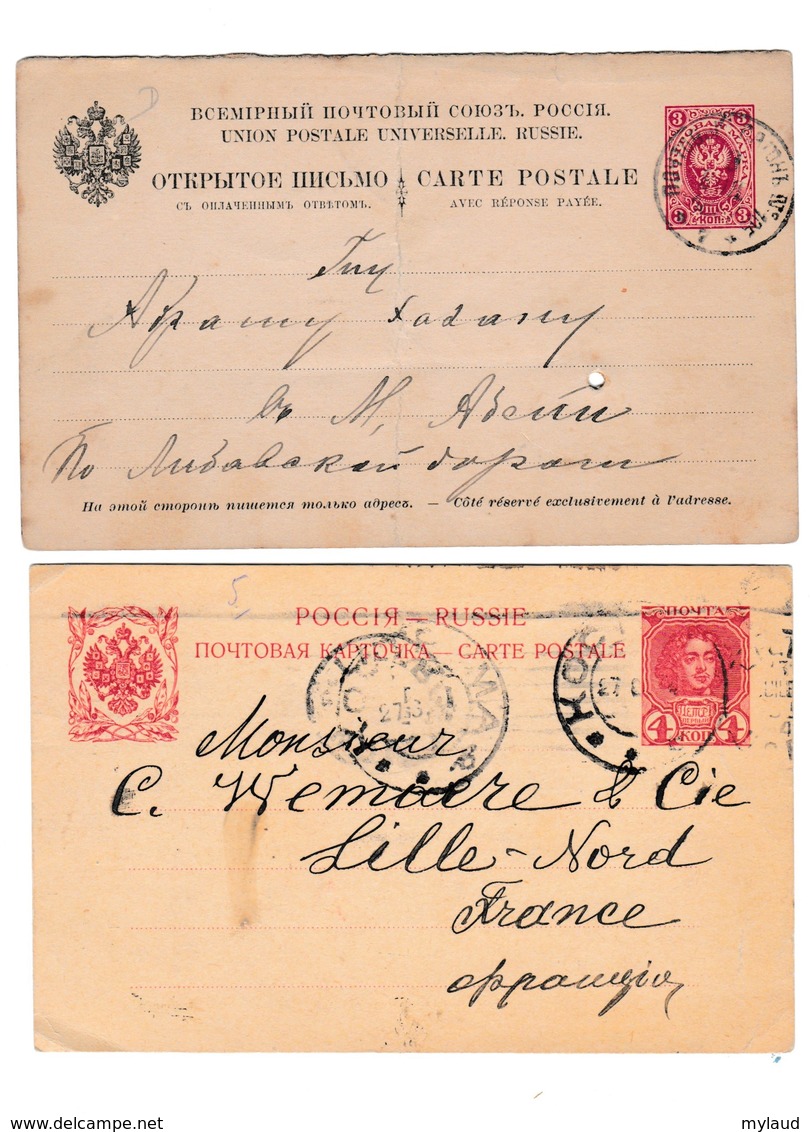 ВСЕМІРНЫЙ ПОЧТОВЫЙ СОЮЗЪ. РОССІЯ.
UNION POSTALE UNIVERSELLE. RUSSIE.
ОТКРЫТОЕ ПИСЬМО CARTE POSTALE
СЪ ОПЛАЧЕННЫМЪ ОТВѢТОМЪ. AVEC RÉPONSE PAYÉE.
3 3
3 КОП. 3
Абраму
въ М,
По Либавской дорогѣ
На этой сторонѣ пишется только адресъ. — Côté réservé exclusivement à l'adresse.
5
РОССІЯ — RUSSIE
ПОЧТОВАЯ КАРТОЧКА — CARTE POSTALE
ПОЧТА
4 КОП 4
Monsieur
C. Wemaere & Cie
Lille-Nord
France
Франція
delcampe.net
mylaud